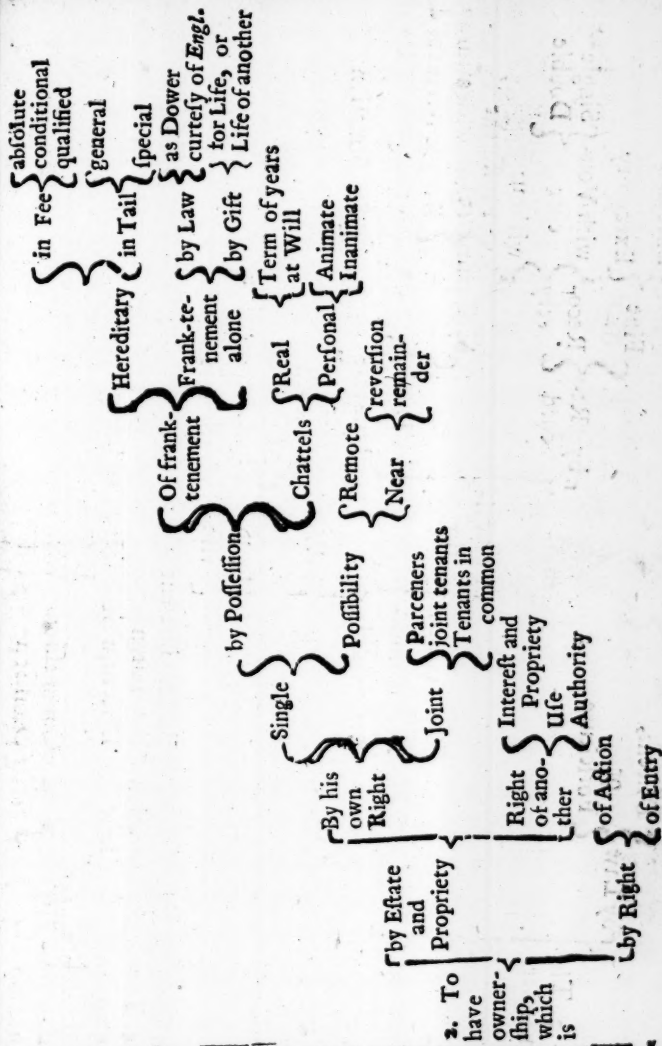 2. To
have
owner-
ſhip,
which
is
by Eſtate
and
Propriety
by Right
By his
own
Right
Right
of ano-
ther
of Action
of Entry
Single
Joint
Intereſt and
Propriety
Uſe
Authority
by Poſſeſſion
Poſſibility
Parceners
joint tenants
Tenants in
common
Of frank-
tenement
Chattels
Remote
Near
reverſion
remain-
der
Hereditary
Frank-te-
nement
alone
Real
Perſonal
in Fee
in Tail
by Law
by Gift
Term of years
at Will
Animate
Inanimate
abſolute
conditional
qualified
general
ſpecial
as Dower
curteſy of Engl.
for Life, or
Life of another